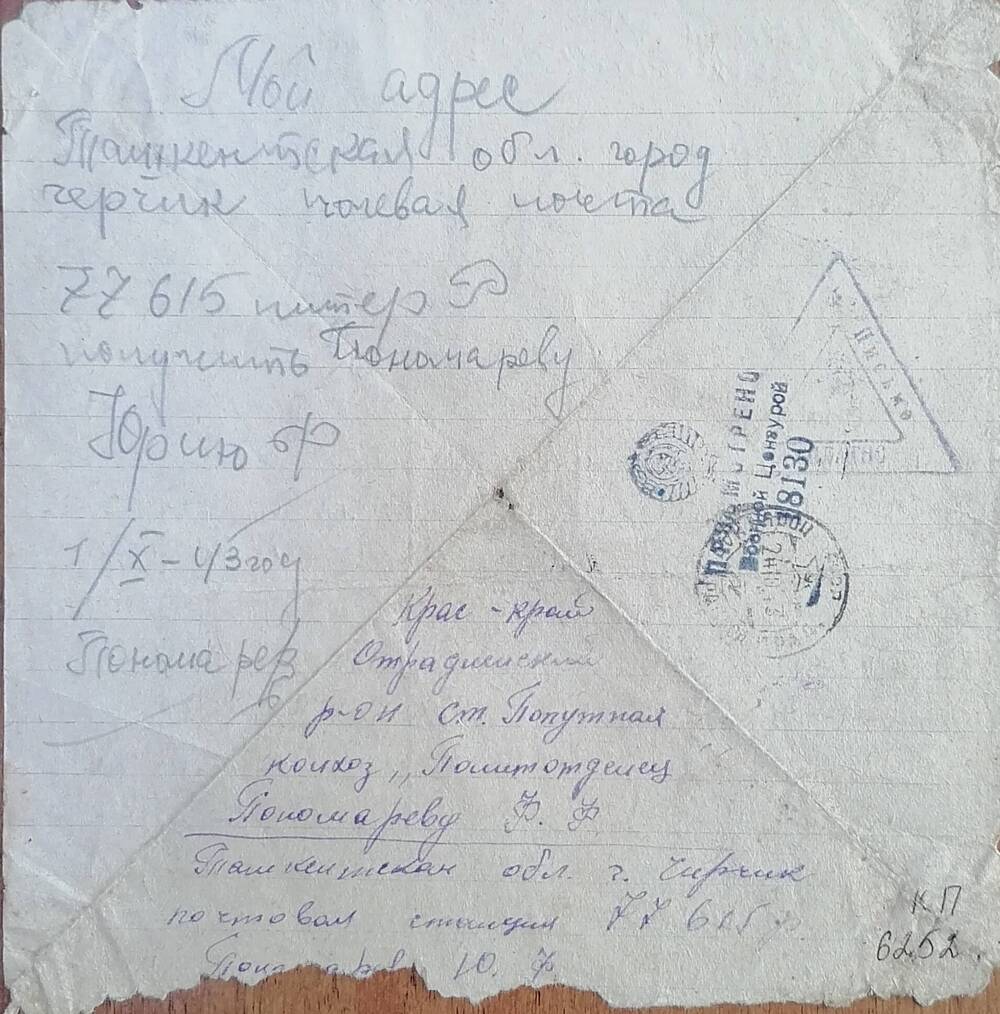 Мой адрес
Ташкентская обл. город
черчик полевая почта
77615 литер Р
получить Пономареву
Юрию Ф
1/X-43 год
Пономарев
Письмо
ПРОСМОТРЕНО
Военной Цензурой
18130
Крас-край
Отрадненский
р-он ст. Попутная
колхоз „Политотделец
Пономареву Ф. Ф
Ташкентская обл. г. Чирчик
почтовая станция 77615 р.
Пономарев Ю. Ф
КП
6252.